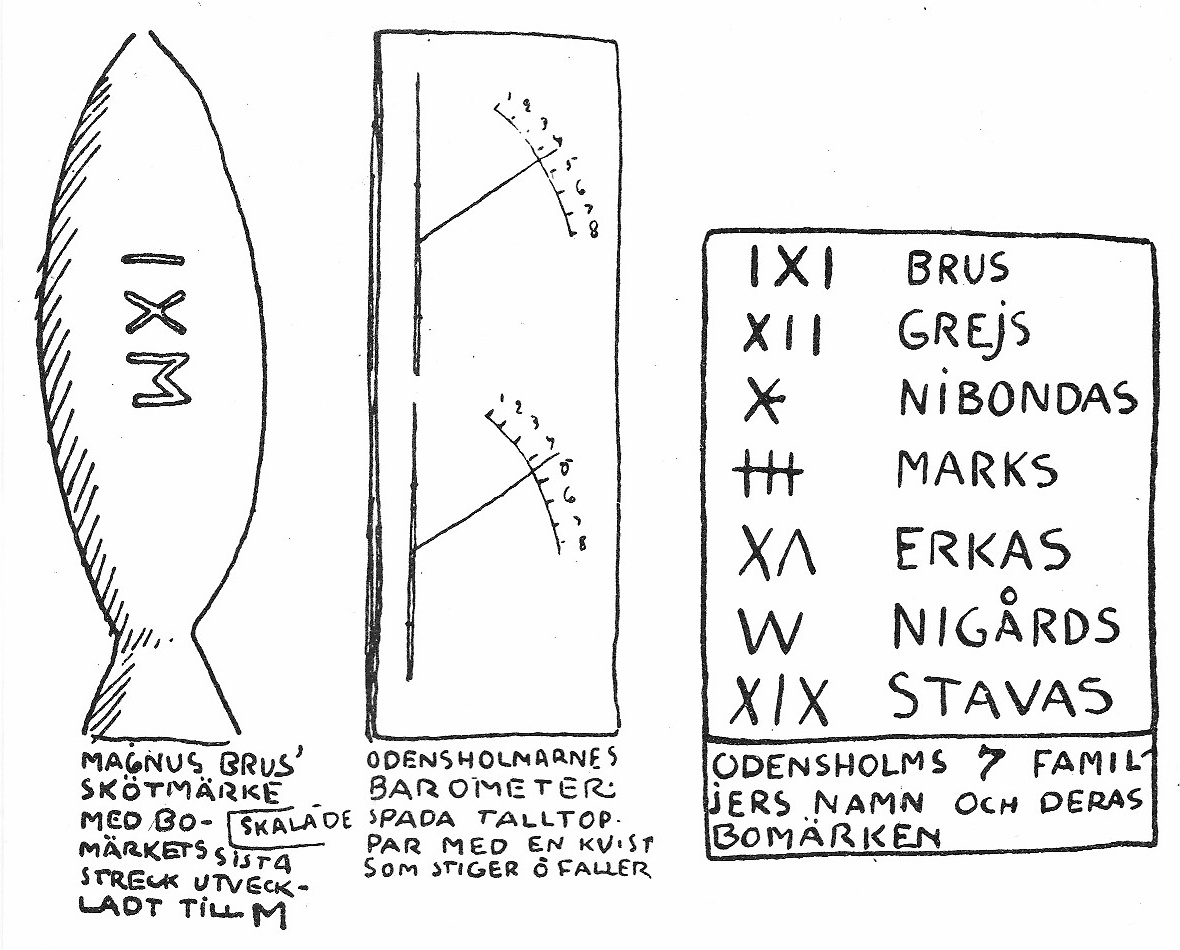 IXM
MAGNUS BRUS'
SKÖTMÄRKE
MED BO-
MÄRKETS SISTA
STRECK UTVECK-
LADT TILL M
SKALADE
1 2 3 4 5 6 7 8
1 2 3 4 5 6 7 8
ODENSHOLMARNES
BAROMETER:
SPADA TALLTOP-
PAR MED EN KVIST
SOM STIGER Ö FALLER
IXI BRUS
XII GREJS
NIBONDAS
MARKS
XΛ ERKAS
W NIGÅRDS
XIX STAVAS
ODENSHOLMS 7 FAMIL-
JERS NAMN OCH DERAS
BOMÄRKEN